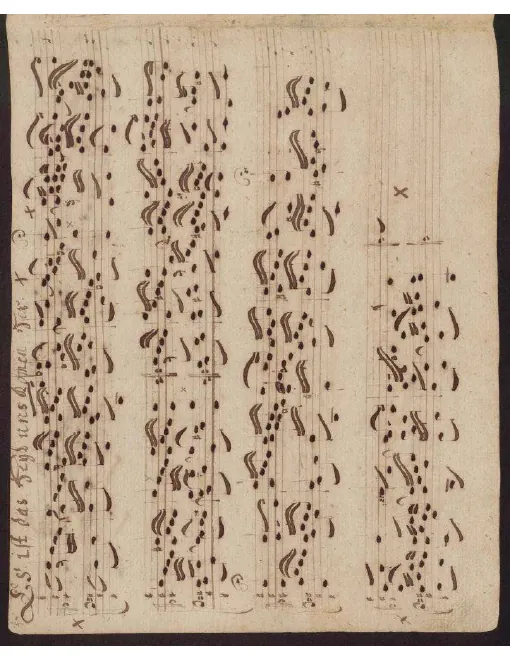 Es ist das Heyl uns Komen her